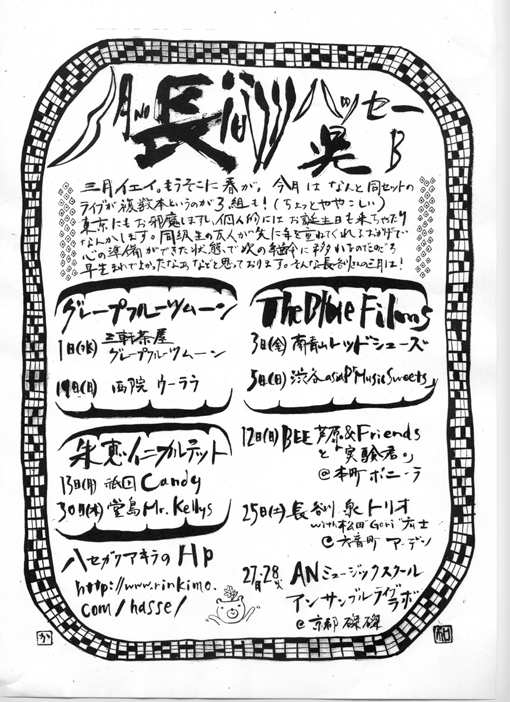 三月の長谷川ハッセー
晃 B
三月イエイ。もうそこに春が。今月はなんと同セットの
ライブが複数本というのが3組も!(ちょっとややこしい)
東京にもお邪魔しますし、個人的にはお誕生日も来ちゃったり
なんかします。同級生の友人が先に年を重ねてくれるおかげで
心の準備ができた状態で次の年齢に移れるのだのだろ
早生まれでよかったなあなどと思っております。そんな長谷川さんの三月は!
グレープフルーツムーン
1日(水) 三軒茶屋
グレープフルーツムーン
19日(日) 西院 ウーララ
The Blue Films
3日(金) 南青山レッドシューズ
5日(日) 渋谷 asiaP「Music Sweets」
朱恵仁カルテット
13日(月) 祇園 Candy
30日(木) 堂島 Mr. Kellys
12日(日) BEE 芦原&Friends
と「実験君」
@本町 ボニーラ
25日(土) 長谷川 晃トリオ
with 松田"Gori"広士
@六音町 アーデン
27月・28火 ANミュージックスクール
アンサンブルライブラボ
@京都 磔磔
ハセガワアキラのHP
http://www.rinkimo.
com/hasse/